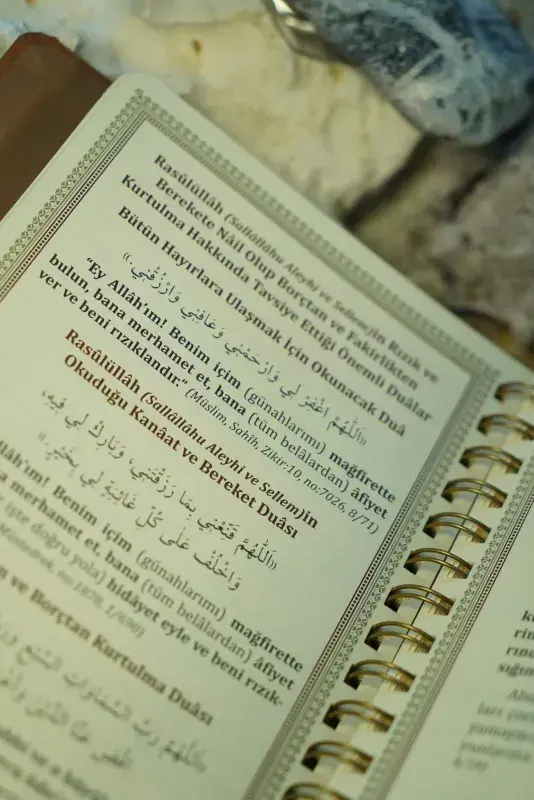 Rasûlüllâh (Sallâllâhu Aleyhi ve Sellem)in Rızık ve
Berekete Nâil Olup Borçtan ve Fakirlikten
Kurtulma Hakkında Tavsiye Ettiği Önemli Duâlar
Bütün Hayırlara Ulaşmak İçin Okunacak Duâ
«اَللّٰهُمَّ اغْفِرْ لِي وَارْحَمْنِي وَعَافِنِي وَارْزُقْنِي.»
“Ey Allâh'ım! Benim için (günahlarımı) mağfirette
bulun, bana merhamet et, bana (tüm belâlardan) âfiyet
ver ve beni rızıklandır.” (Müslim, Sahîh, Zikir:10, no:7026, 8/71)
Rasûlüllâh (Sallâllâhu Aleyhi ve Sellem)in
Okuduğu Kanâat ve Bereket Duâsı
«اَللّٰهُمَّ قَنِّعْنِي بِمَا رَزَقْتَنِي، وَبَارِكْ لِي فِيهِ،
وَاخْلُفْ عَلَى كُلِّ غَائِبَةٍ لِي بِخَيْرٍ.»
llâh'ım! Benim için (günahlarımı) mağfirette
a merhamet et, bana (tüm belâlardan) âfiyet
(doğru yola) hidâyet eyle ve beni rızık-
n ve Borçtan Kurtulma Duâsı
«اَللّٰهُمَّ رَبَّ السَّمٰوَاتِ السَّبْعِ